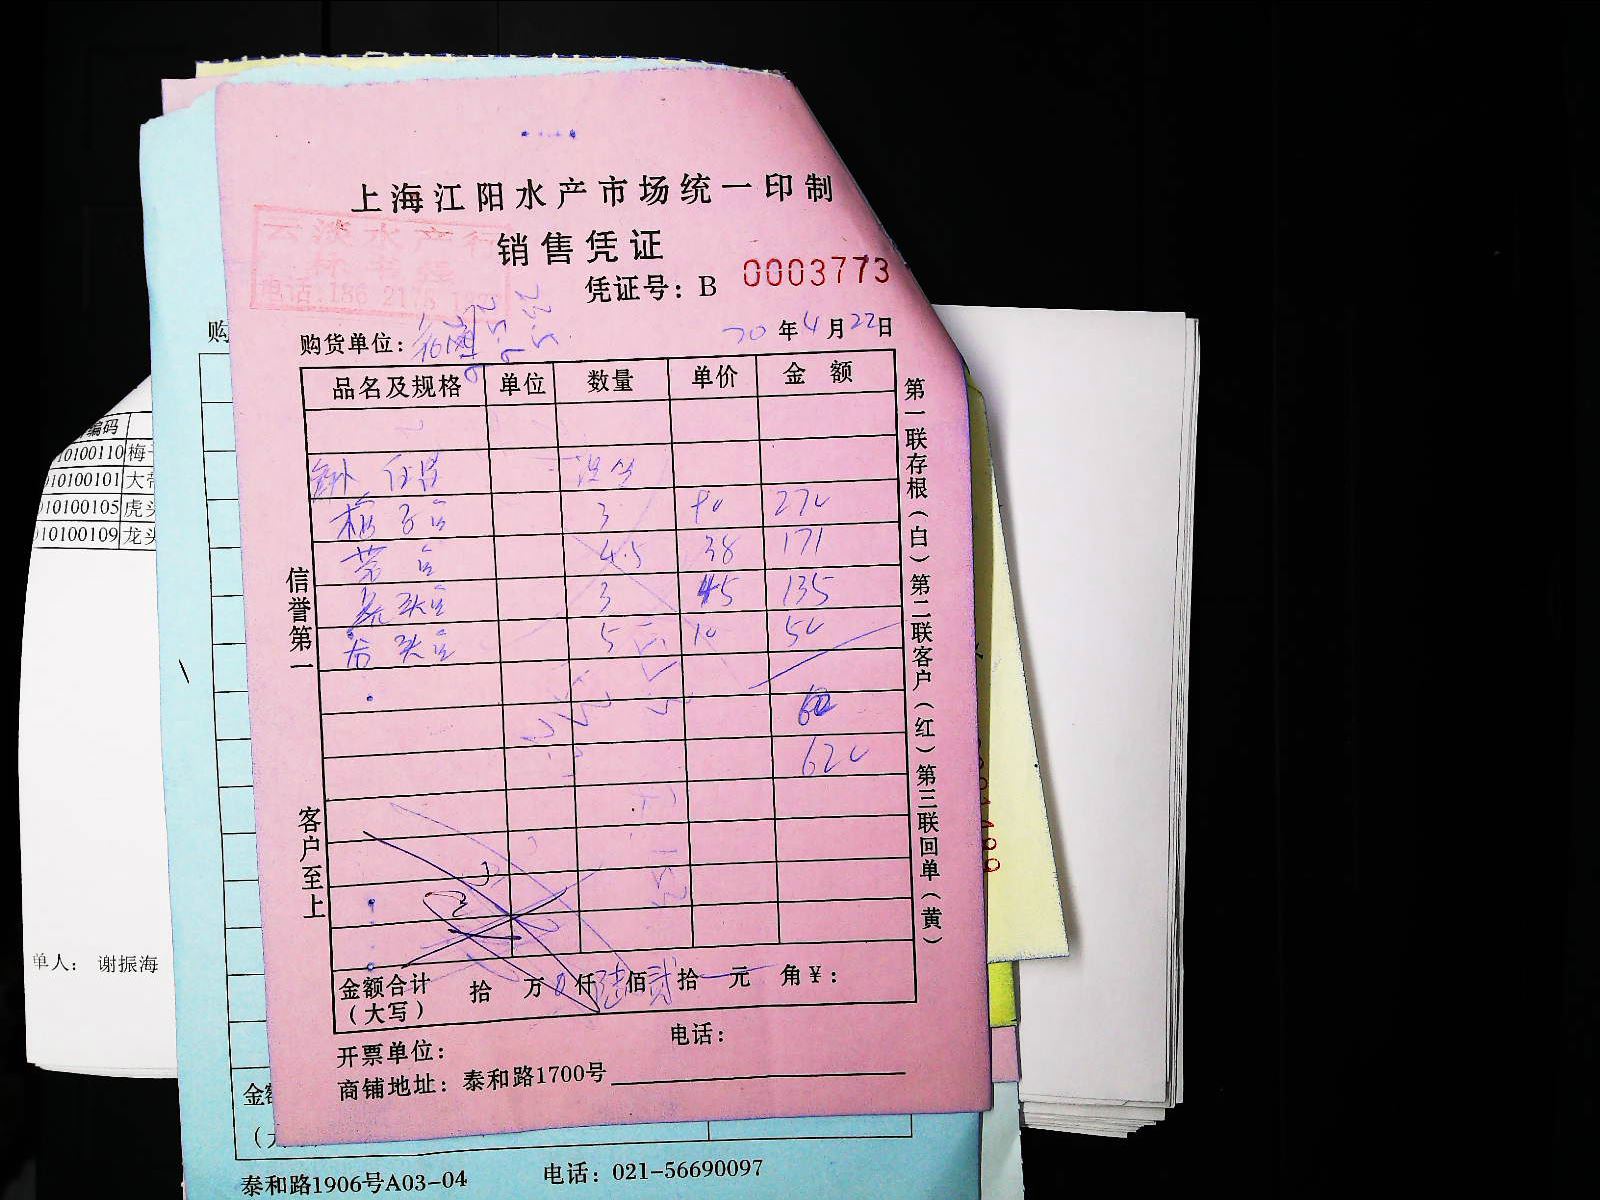 上海江阳水产市场统一印制
云淡水产行
销售凭证
凭证号：B 0003773
购
购货单位：
20年4月22日
品名及规格 单位 数量 单价 金额
梅子鱼 3 90 270
带鱼 4.5 38 171
虎头鱼 3 45 135
龙头鱼 5 10 50
620
信誉第一
客户至上
第一联存根（白）第二联客户（红）第三联回单（黄）
金额合计（大写） 拾 万 0仟 陆佰 贰拾 元 角 ¥：
开票单位：
电话：
商铺地址：泰和路1700号
编码
10100110 梅
010100101 大
010100105 虎头
10100109 龙头
单人： 谢振海
泰和路1906号A03-04 电话：021-56690097